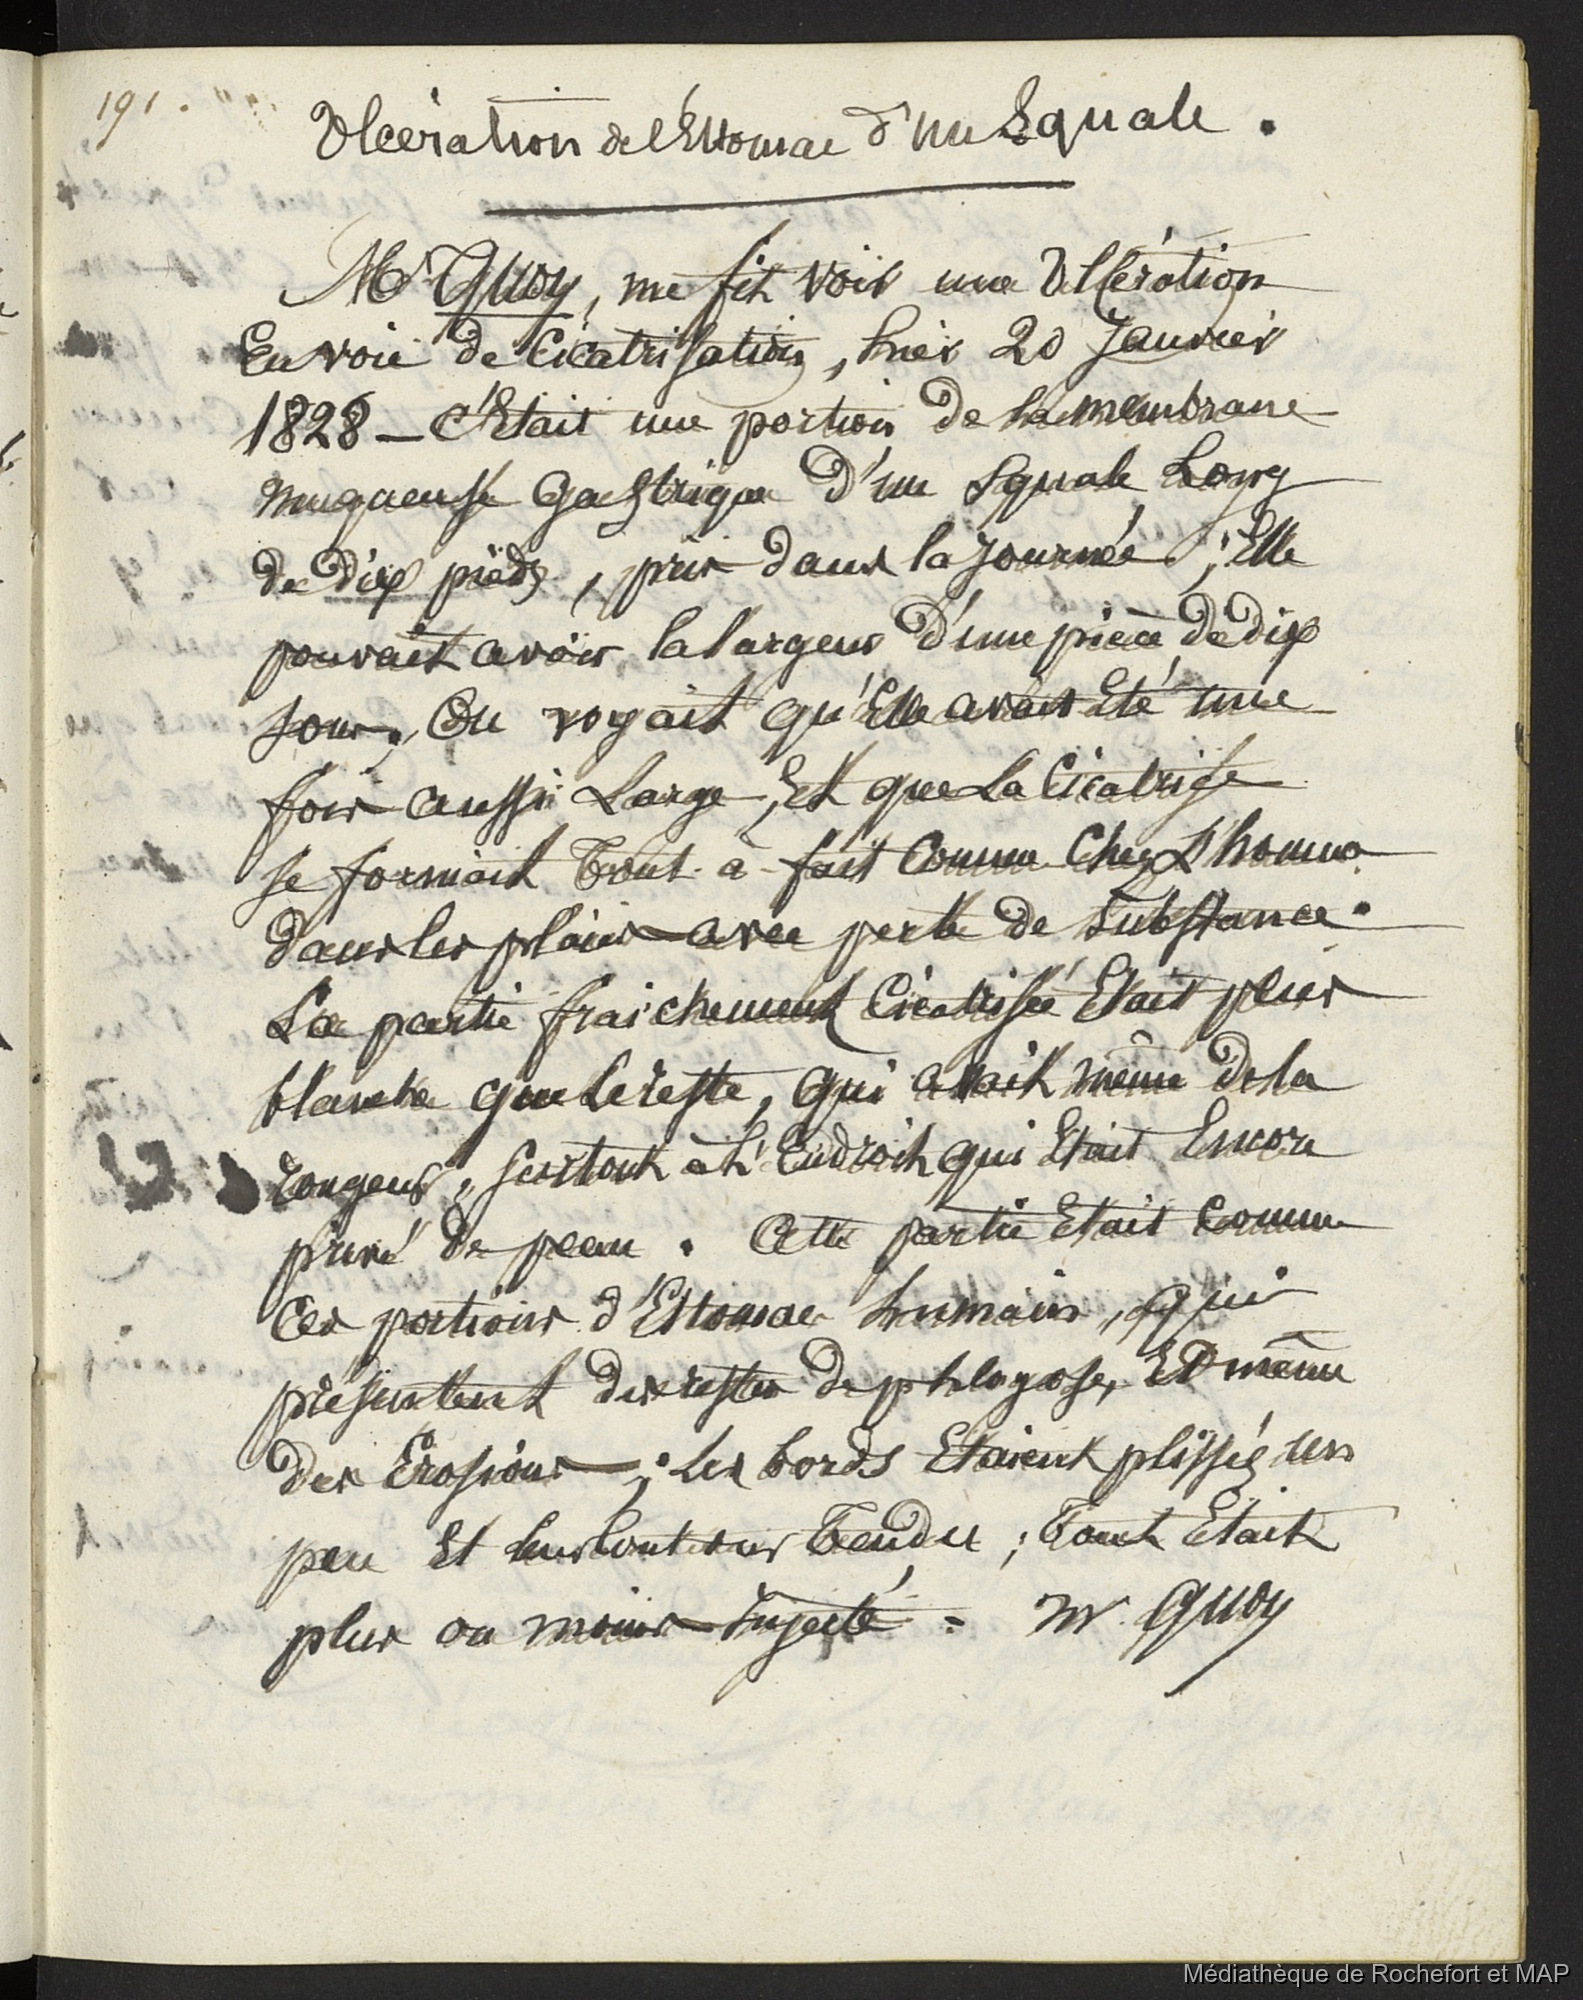 191.
Ulcération de l'Estomac d'un Squale.
Mr Quoy, me fit voir une Ulcération
En voie de Cicatrisation, hier 20 Janvier
1828 — C'Etait une portion de la membrane
muqueuse Gastrique d'un Squale Long
de dix pieds, pris dans la Journée; Elle
pouvait avoir la largeur d'une pièce de dix
sous; On voyait qu'Elle avait Eté une
fois aussi Large, Et que La Cicatrise
se formait Tout-à-fait Comme Chez L'homme
dans les plaies avec perte de Substance.
La partie fraichement Cicatrisée Etait plus
blanche que Le reste, qui avait même de la
rougeur, surtout à L'Endroit qui Etait Encore
privé de peau. Cette partie Etait Comme
Ces portions d'Estomac humain, qui
présentent des restes de phlogose, Et même
des Erosions —; Les bords Etaient plissés un
peu Et Tendu; Tout Etait
plus ou moins Injecté = Mr. Quoy
Médiathèque de Rochefort et MAP